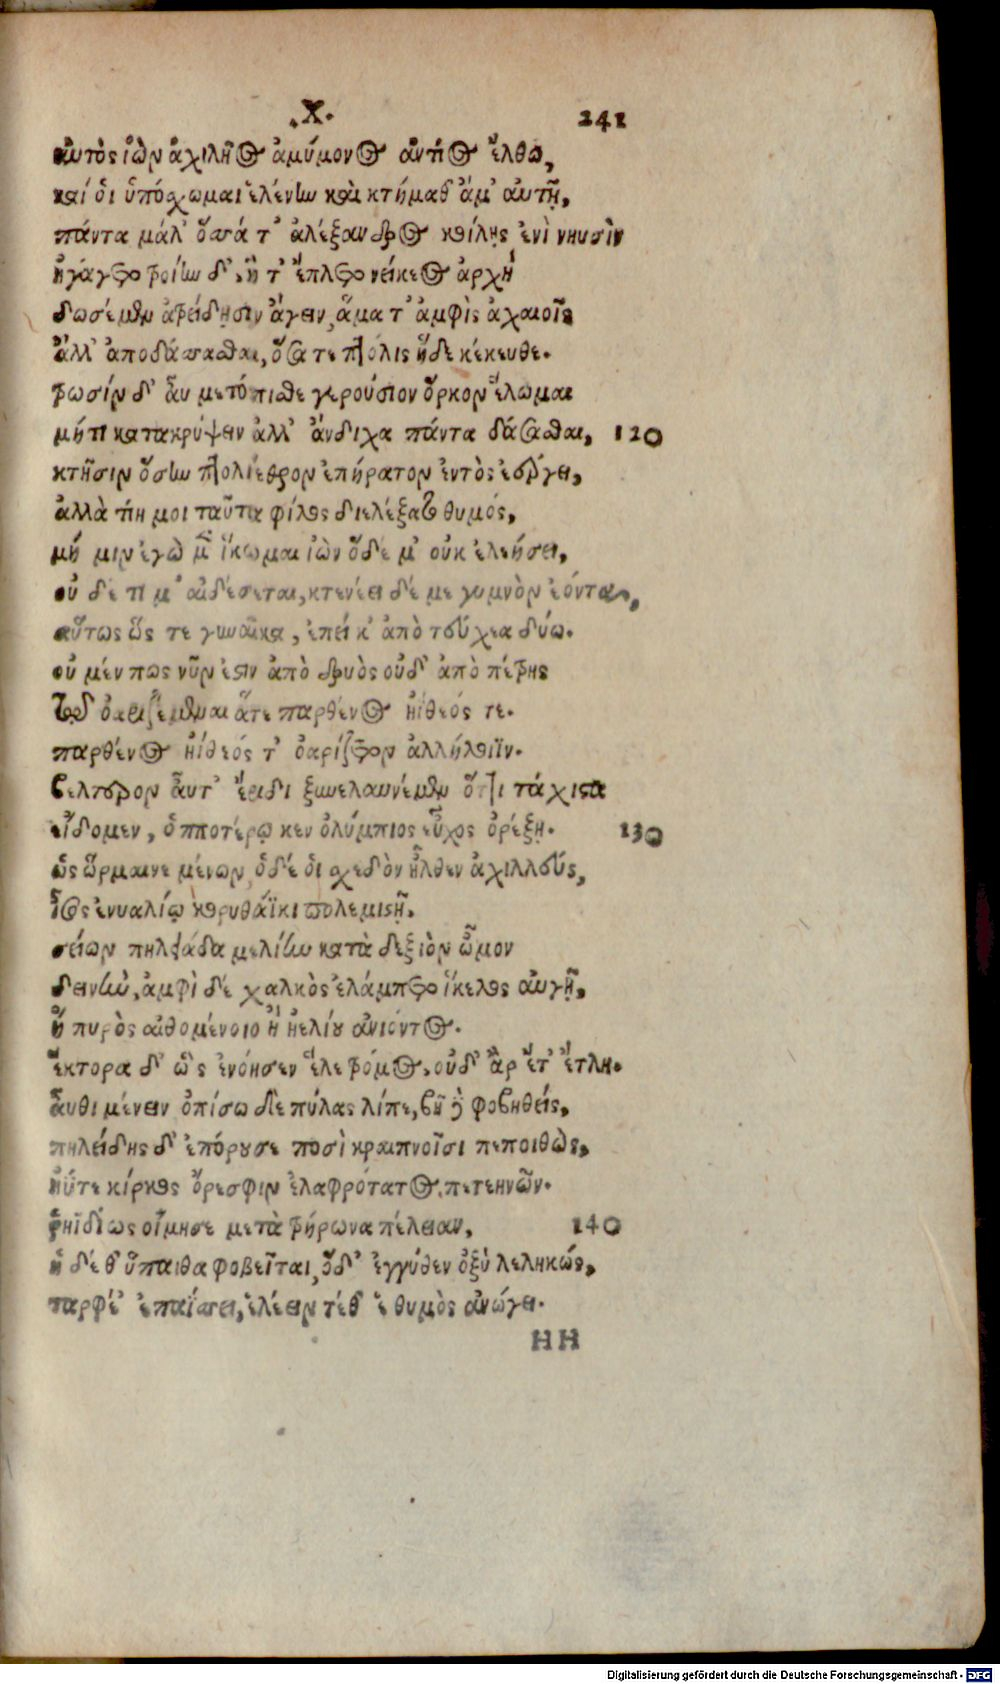 .X.
241
αὐτὸς ἰὼν ἀχιλῆος ἀμύμονος ἀντίος ἔλθω,
καί οἱ ὑπόσχωμαι ἑλένην καὶ κτήμαθ' ἅμ' αὐτῇ,
πάντα μάλ' ὅσσά τ' ἀλέξανδρος κοίλης ἐνὶ νηυσὶν
ἠγάγετο τροίην δ', ἥ τ' ἔπλετο νείκεος ἀρχή
δωσέμεν ἀτρείδησιν ἄγειν, ἅμα τ' ἀμφὶς ἀχαιοῖς
ἄλλ' ἀποδάσσασθαι, ὅσα τε πτόλις ἥδε κέκευθε.
τρωσίν δ' αὖ μετόπισθε γερούσιον ὅρκον ἕλωμαι
μή τι κατακρύψειν ἀλλ' ἄνδιχα πάντα δάσασθαι, 120
κτῆσιν ὅσην πτολίεθρον ἐπήρατον ἐντὸς ἐέργει,
ἀλλὰ τίη μοι ταῦτα φίλος διελέξατο θυμός,
μή μιν ἐγὼ μὲν ἵκωμαι ἰὼν ὅδέ μ' οὐκ ἐλεήσει,
οὐ δέ τι μ' αἰδέσεται, κτενέει δέ με γυμνὸν ἐόντα,
αὔτως ὥς τε γυναῖκα, ἐπεί κ' ἀπὸ τεύχεα δύω.
οὐ μέν πως νῦν ἐστιν ἀπὸ δρυὸς οὐδ' ἀπὸ πέτρης
τῷδ ὀαριζέμεναι ἅτε παρθένος ἠΐθεός τε.
παρθένος ἠΐθεός τ' ὀαρίζετον ἀλλήλοιϊν.
βέλτερον αὖτ' ἔριδι ξυνελαυνέμεν ὅττι τάχιστα
εἴδομεν, ὁπποτέρῳ κεν ὀλύμπιος εὖχος ὀρέξῃ. 130
ὣς ὥρμαινε μένων, ὁδέ οἱ σχεδὸν ἦλθεν ἀχιλλεύς,
ἶσος ἐνυαλίῳ κορυθάϊκι πολεμιστῇ.
σείων πηλιάδα μελίην κατὰ δεξιὸν ὦμον
δεινὴν, ἀμφὶ δέ χαλκὸς ἐλάμπετο ἴκελος αὐγῇ,
ἢ πυρὸς αἰθομένοιο ἢ ἠελίου ἀνιόντος.
ἕκτορα δ' ὣς ἐνόησεν ἕλε τρόμος, οὐδ' ἄρ ἔτ' ἔτλη.
αὖθι μένειν ὀπίσω δὲ πύλας λίπε, βῆ δὲ φοβηθείς,
πηλείδης δ' ἐπόρουσε ποσὶ κραιπνοῖσι πεποιθὼς,
ἠΰτε κίρκος ὄρεσφιν ἐλαφρότατος πετεηνῶν.
ῥηϊδίως οἴμησε μετὰ τρήρωνα πέλειαν, 140
ἡ δέ θ' ὕπαιθα φοβεῖται, ὅδ' ἐγγύθεν ὀξὺ λεληκώς,
ταρφέ' ἐπαΐσσει, ἑλέειν τέ θ' ἑ θυμὸς ἀνώγει.
HH
Digitalisierung gefördert durch die Deutsche Forschungsgemeinschaft - DFG